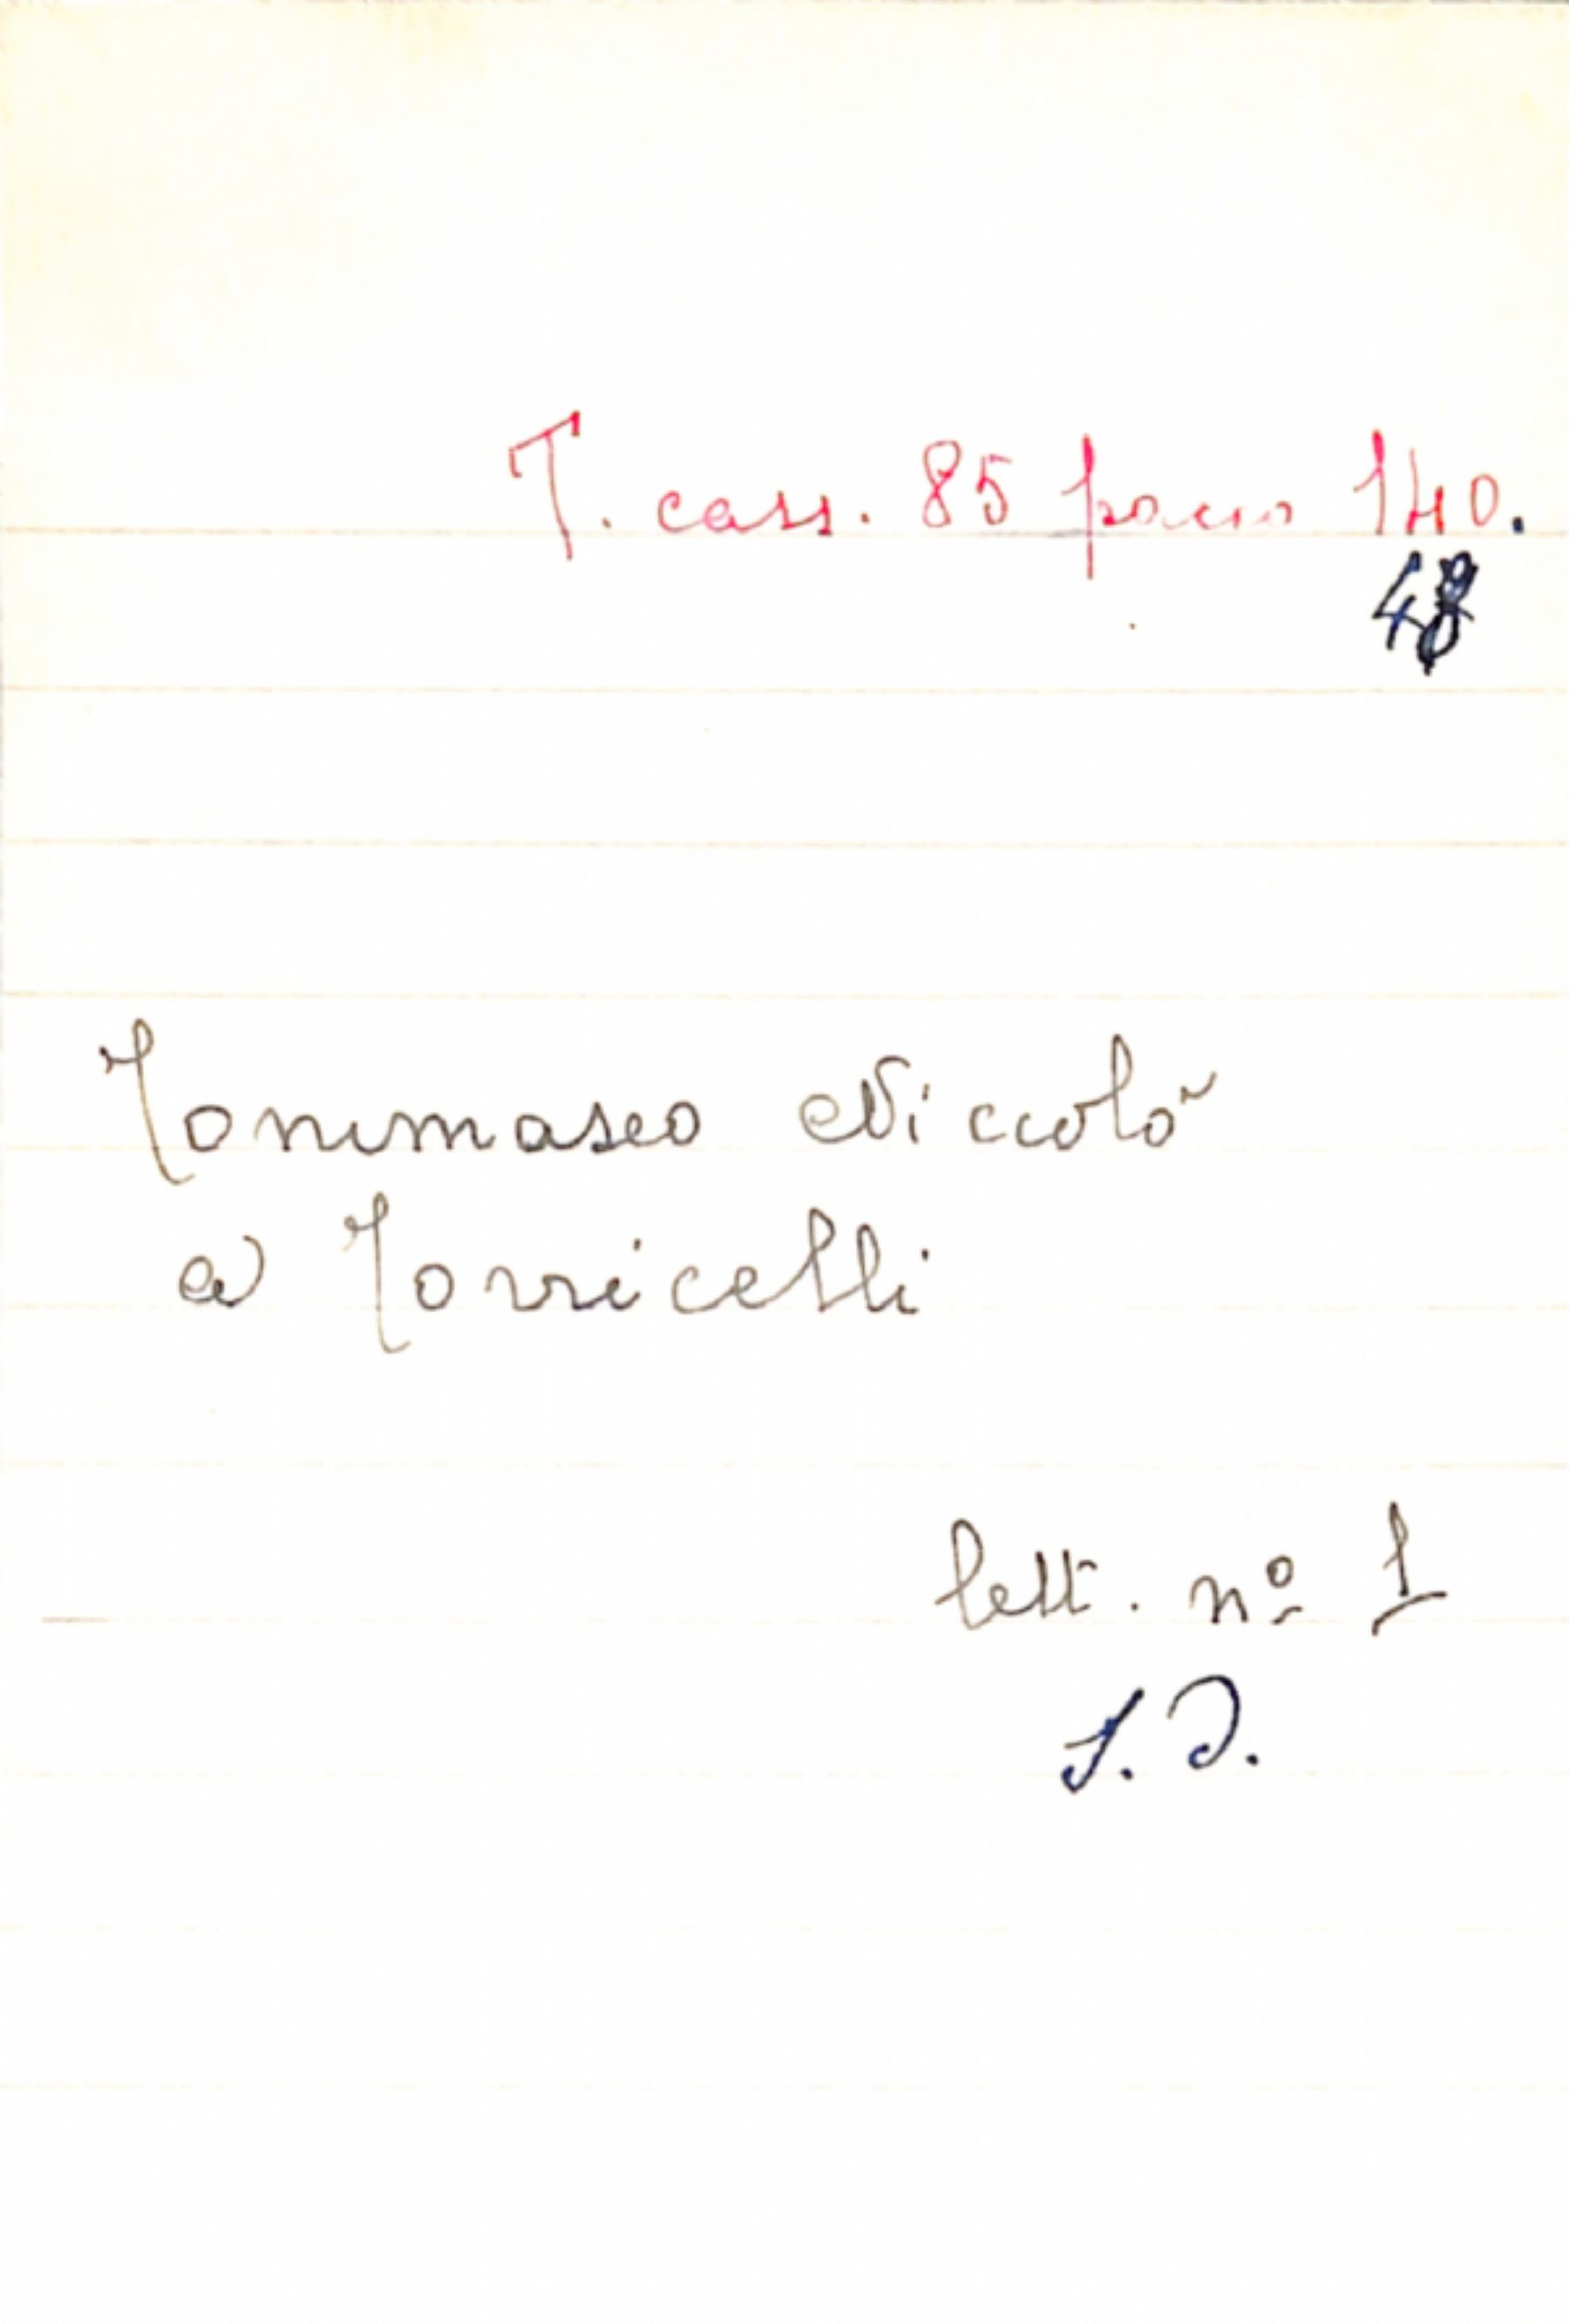 T. cass. 85 pacco 140.
48
Tommaseo Niccolò
a Torricelli
lett. nº 1
S.D.